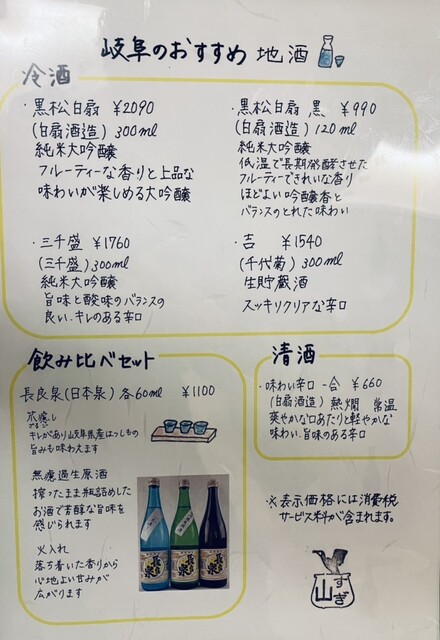 岐阜のおすすめ 地酒
冷酒
・黒松白扇 ¥2090
(白扇酒造) 300ml
純米大吟醸
フルーティーな香りと上品な
味わいが楽しめる大吟醸
・黒松白扇 黒 ¥990
(白扇酒造) 120ml
純米大吟醸
低温で長期発酵させた
フルーティーできれいな香り
ほどよい吟醸香と
バランスのとれた味わい
・三千盛 ¥1760
(三千盛) 300ml
純米大吟醸
旨味と酸味のバランスの
良い、キレのある辛口
・吉 ¥1540
(千代菊) 300ml
生貯蔵酒
スッキリクリアな辛口
飲み比べセット
長良泉(日本泉) 各60ml ¥1100
キレがあり岐阜県産はつしもの
旨みも味わえます
無濾過生原酒
搾ったまま瓶詰めした
お酒で芳醇な旨味を
感じられます
火入れ
落ち着いた香りから
心地よい甘みが
広がります
長良泉
清酒
・味わい辛口 一合 ¥660
(白扇酒造) 熱燗 常温
爽やかな口あたりと軽やかな
味わい、旨味のある辛口
※表示価格には消費税
サービス料が含まれます。
山すぎ